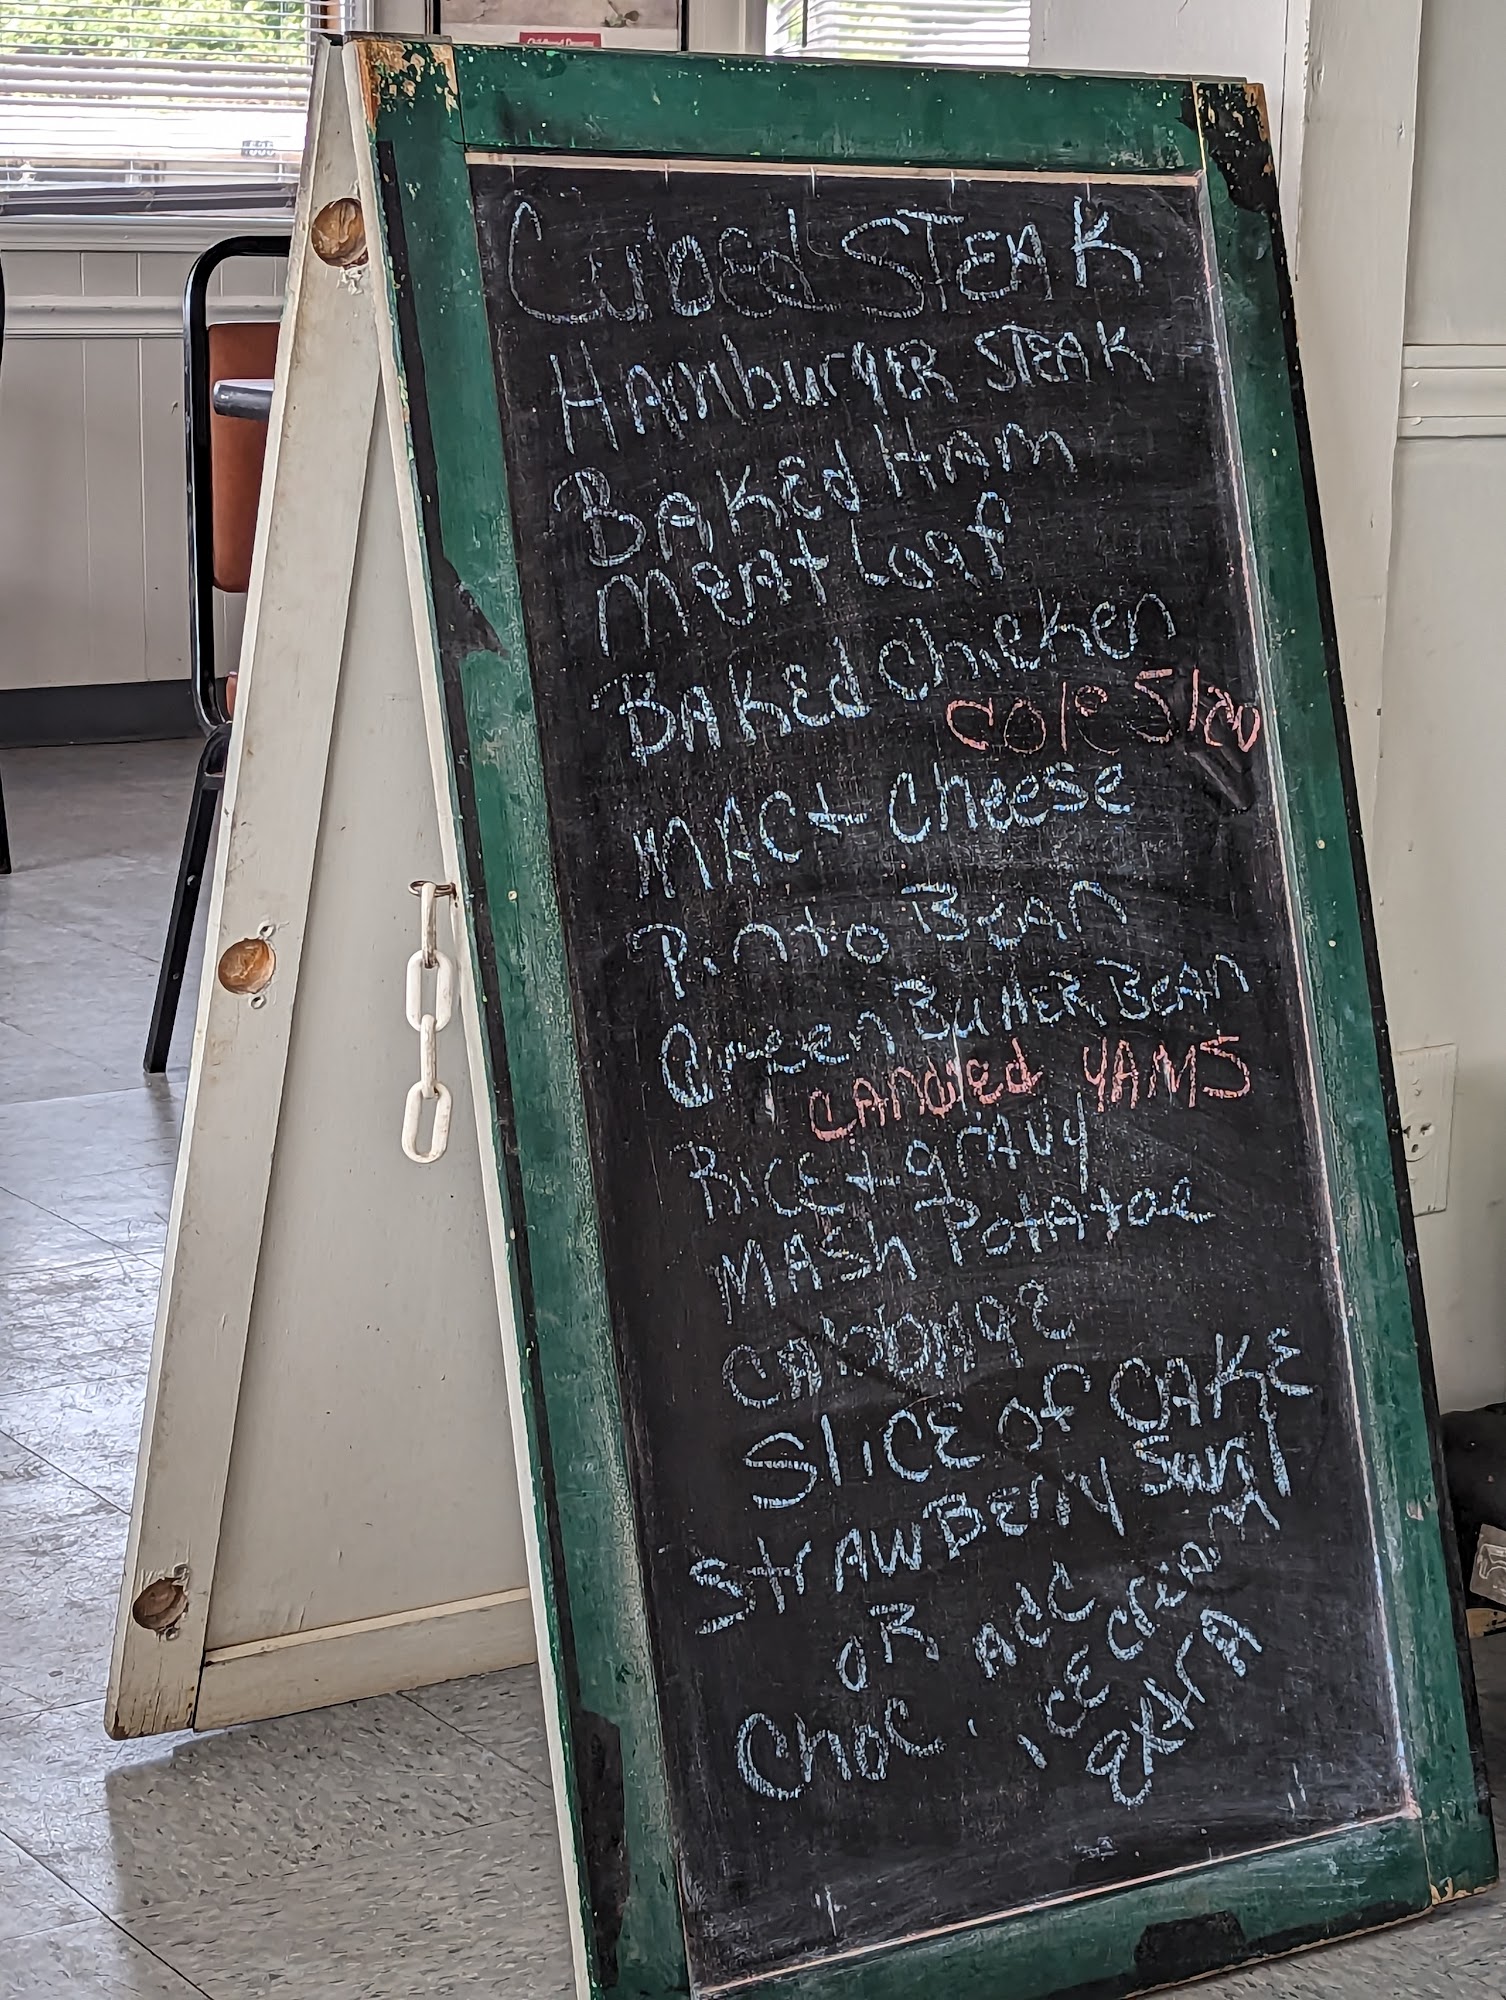 Cubed STEAK
HAmburgER STEAK
BAKEd HAm
MEAt LoAf
BAKEd Chicken
Cole Slaw
MAC + Cheese
Pinto BEAN
Green ButtER BEAN
CANdied YAMS
RICE + grAvy
MASh PotAtoe
CAbbAge
SlicE Of CAKE
StrAWBErry
OR
Choc.
Add
ICE CrEAM
ExtrA